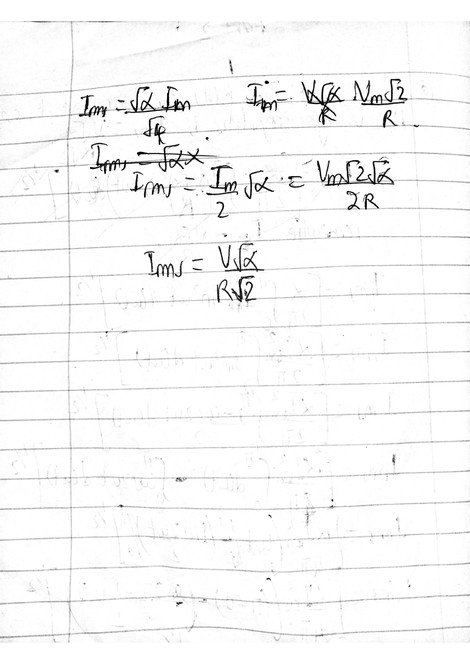 I_rms = √α I_m / √4    I_m = V_m√2 / R
I_rms = √α x
I_rms = I_m / 2 √α = V_m√2√α / 2R
I_rms = V√α / R√2